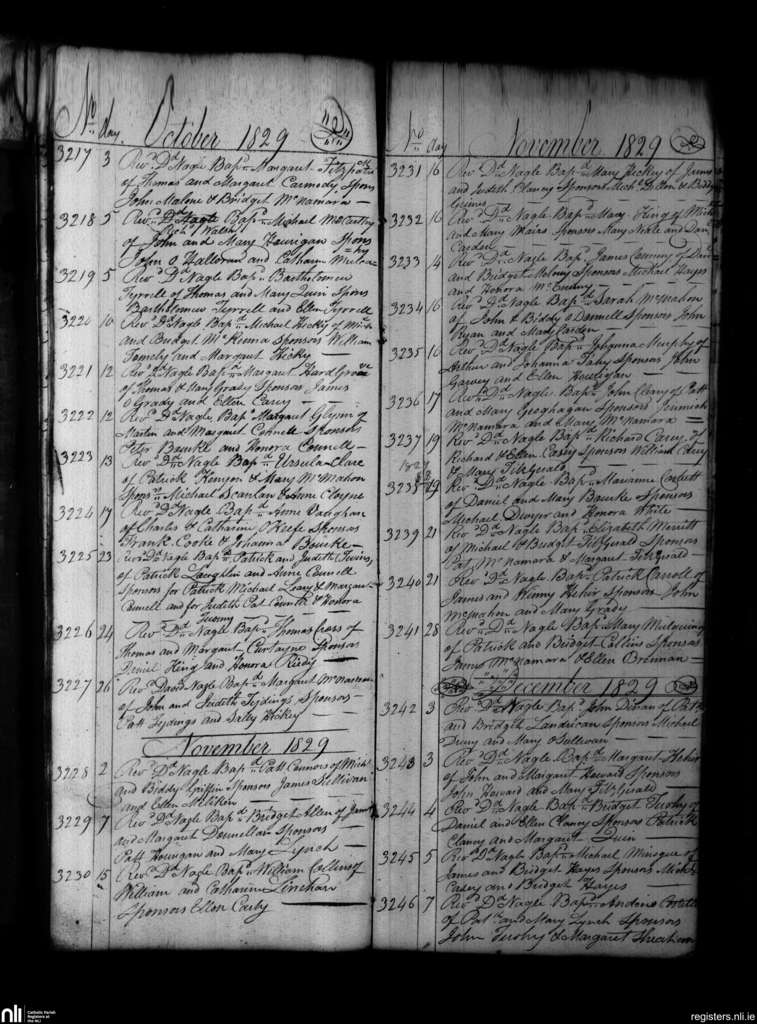 No day October 1829
3217 3 Revd Dd Nagle Bapd Margaret Fitzpatk
of Thomas and Margaret Carmody Spons
John Malone & Bridget McNamara
3218 5 Revd Dd Nagle Bapd Michael McCarthy
Walsh
of John and Mary Hourigan Spons
John O Halloran and Catharin
3219 5 Revd Dd Nagle Bapd Bartholomew
Tyrrell of Thomas and Mary Quin Spons
Bartholomew Tyrrell and Ellen Tyrrell
3220 10 Revd Dd Nagle Bapd Michael Hicky of Mich
and Bridget McKenna Sponsors William
Tomely and Margaret Hicky
3221 12 Revd Dd Nagle Bapd Margaret Hardgrove
of Thomas & Mary Grady Sponsors James
O Grady and Ellen Carey
3222 12 Revd Dd Nagle Bapd Margaret Glynn of
Martin and Margaret Connell Sponsors
Peter Bourke and Honora Connell
3223 13 Revd Dd Nagle Bapd Ursula Clare
of Patrick Kenyon & Mary McMahon
Spons Michael Scanlan & Anne Cloyne
3224 17 Revd Dd Nagle Bapd Anne Vaughan
of Charles & Catharine O Keefe Spons
Frank Cooke & Johanna Bourke
3225 23 Revd Dd Nagle Bapd Patrick and Judith Twins,
of Patrick Laughlin and Anne Connell
Sponsors for Patrick Michael Leary & Margaret
Connell and for Judith Pat & Honora
3226 24 Revd Dd Nagle Bapd Thomas Cross of
Thomas and Margaret Curtayne Sponsors
Daniel King and Honora Reidy
3227 26 Revd David Nagle Bapd Margaret McNamara
of John and Judith Tydings Sponsors
Patt Tydings and Betty Hickey
November 1829
3228 2 Revd Dd Nagle Bapd Patt Connors of Mich
and Biddy Griffin Sponsors James Sullivan
and Ellen Miliken
3229 7 Revd Dd Nagle Bapd Bridget Allen of James
and Margaret Donnellan Sponsors
Patt Hourigan and Mary Lynch
3230 15 Revd Dd Nagle Bapd William Collins of
William and Catharine Linehan
Sponsors Ellen Carby
No day November 1829
3231 16 Revd Dd Nagle Bapd Mary Hickey of James
and Judith Clancy Sponsors Michl & Biddy
3232 16 Revd Dd Nagle Bapd Mary King of Mich
and Mary Mairs Sponsors Mary Neale and Dan
Carden
3233 14 Revd Dd Nagle Bapd James of Danl
and Bridget Molony Sponsors Michael Hayes
and Honora
3234 16 Revd Dd Nagle Bapd Sarah McMahon
of John & Biddy O Donnell Sponsors John
Ryan and Mary Carden
3235 16 Revd Dd Nagle Bapd Johanna Murphy of
Arthur and Johanna Fahy Sponsors John
Garvey and Ellen Hourigan
3236 17 Revd Dd Nagle Bapd John Cleary of Patt
and Mary Geoghagan Sponsors Jeremiah
McNamara and Mary McNamara
3237 19 Revd Dd Nagle Bapd Richard Carey of
Richard & Ellen Casey Sponsors William Carey
& Mary Fitzgerald
3238 19 Revd Dd Nagle Bapd Marianne Corbett
of Daniel and Mary Bourke Sponsors
Michael Dwyer and Honora White
3239 21 Revd Dd Nagle Bapd Elizabeth Merritt
of Michael & Bridget Fitzgerald Sponsors
Pat McNamara & Margaret Fitzgerald
3240 21 Revd Dd Nagle Bapd Patrick Carroll of
James and Winny Hehir Sponsors John
McMahon and Mary Grady
3241 28 Revd Dd Nagle Bapd Mary
of Patrick and Bridget Collins Sponsors
James McNamara & Ellen Brennan
December 1829
3242 3 Revd Dd Nagle Bapd John of Patt
and Bridget Landrican Sponsors Michael
and Mary O Sullivan
3243 3 Revd Dd Nagle Bapd Margaret Hehir
of John and Margaret Howard Sponsors
John Howard and Mary Fitzgerald
3244 4 Revd Dd Nagle Bapd Bridget Tuohy of
Daniel and Ellen Clancy Sponsors Patrick
Clancy and Margaret Quin
3245 5 Revd Dd Nagle Bapd Michael of
James and Bridget Hayes Sponsors Michl
Casey and Bridget Hayes
3246 7 Revd Dd Nagle Bapd
of Patt and Mary Lynch Sponsors
John Tuohy & Margaret
nli Catholic Parish
Registers at
the NLI
registers.nli.ie